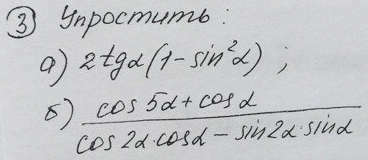 ③ Упростить:
а) 2tgα(1-sin²α) ;
б) cos 5α + cos α
cos 2α·cos α - sin 2α·sin α